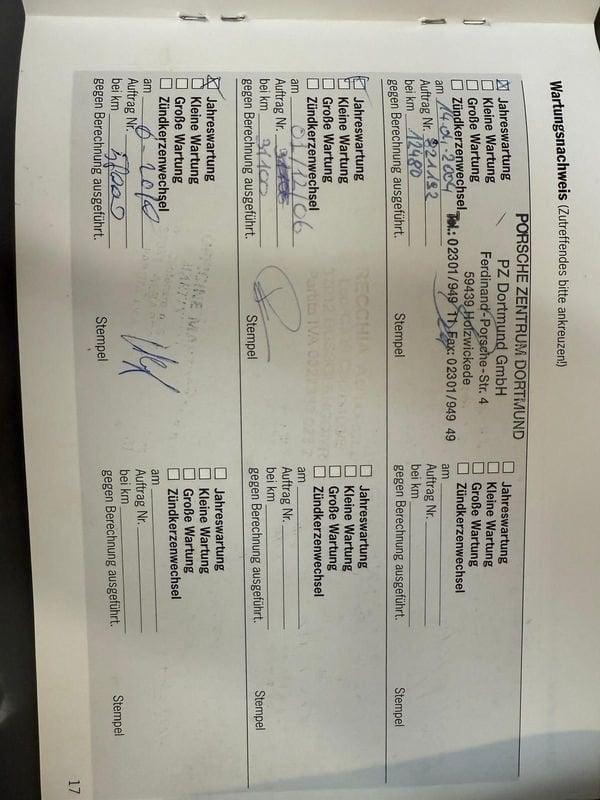 Wartungsnachweis (Zutreffendes bitte ankreuzen!)
Jahreswartung
Kleine Wartung
Große Wartung
Zündkerzenwechsel
am 14.04.2004
Auftrag Nr. 921192
bei km 12480
gegen Berechnung ausgeführt.
PORSCHE ZENTRUM DORTMUND
PZ Dortmund GmbH
Ferdinand-Porsche-Str. 4
59439 Holzwickede
Tel.: 02301/949 11 Fax: 02301/949 49
Stempel
Jahreswartung
Kleine Wartung
Große Wartung
Zündkerzenwechsel
am
Auftrag Nr.
bei km
gegen Berechnung ausgeführt.
Stempel
Jahreswartung
Kleine Wartung
Große Wartung
Zündkerzenwechsel
am 01/12/06
Auftrag Nr.
bei km 31100
gegen Berechnung ausgeführt.
Stempel
Jahreswartung
Kleine Wartung
Große Wartung
Zündkerzenwechsel
am
Auftrag Nr.
bei km
gegen Berechnung ausgeführt.
Stempel
Jahreswartung
Kleine Wartung
Große Wartung
Zündkerzenwechsel
am 6-2010
Auftrag Nr.
bei km
gegen Berechnung ausgeführt.
Stempel
Jahreswartung
Kleine Wartung
Große Wartung
Zündkerzenwechsel
am
Auftrag Nr.
bei km
gegen Berechnung ausgeführt.
Stempel
17